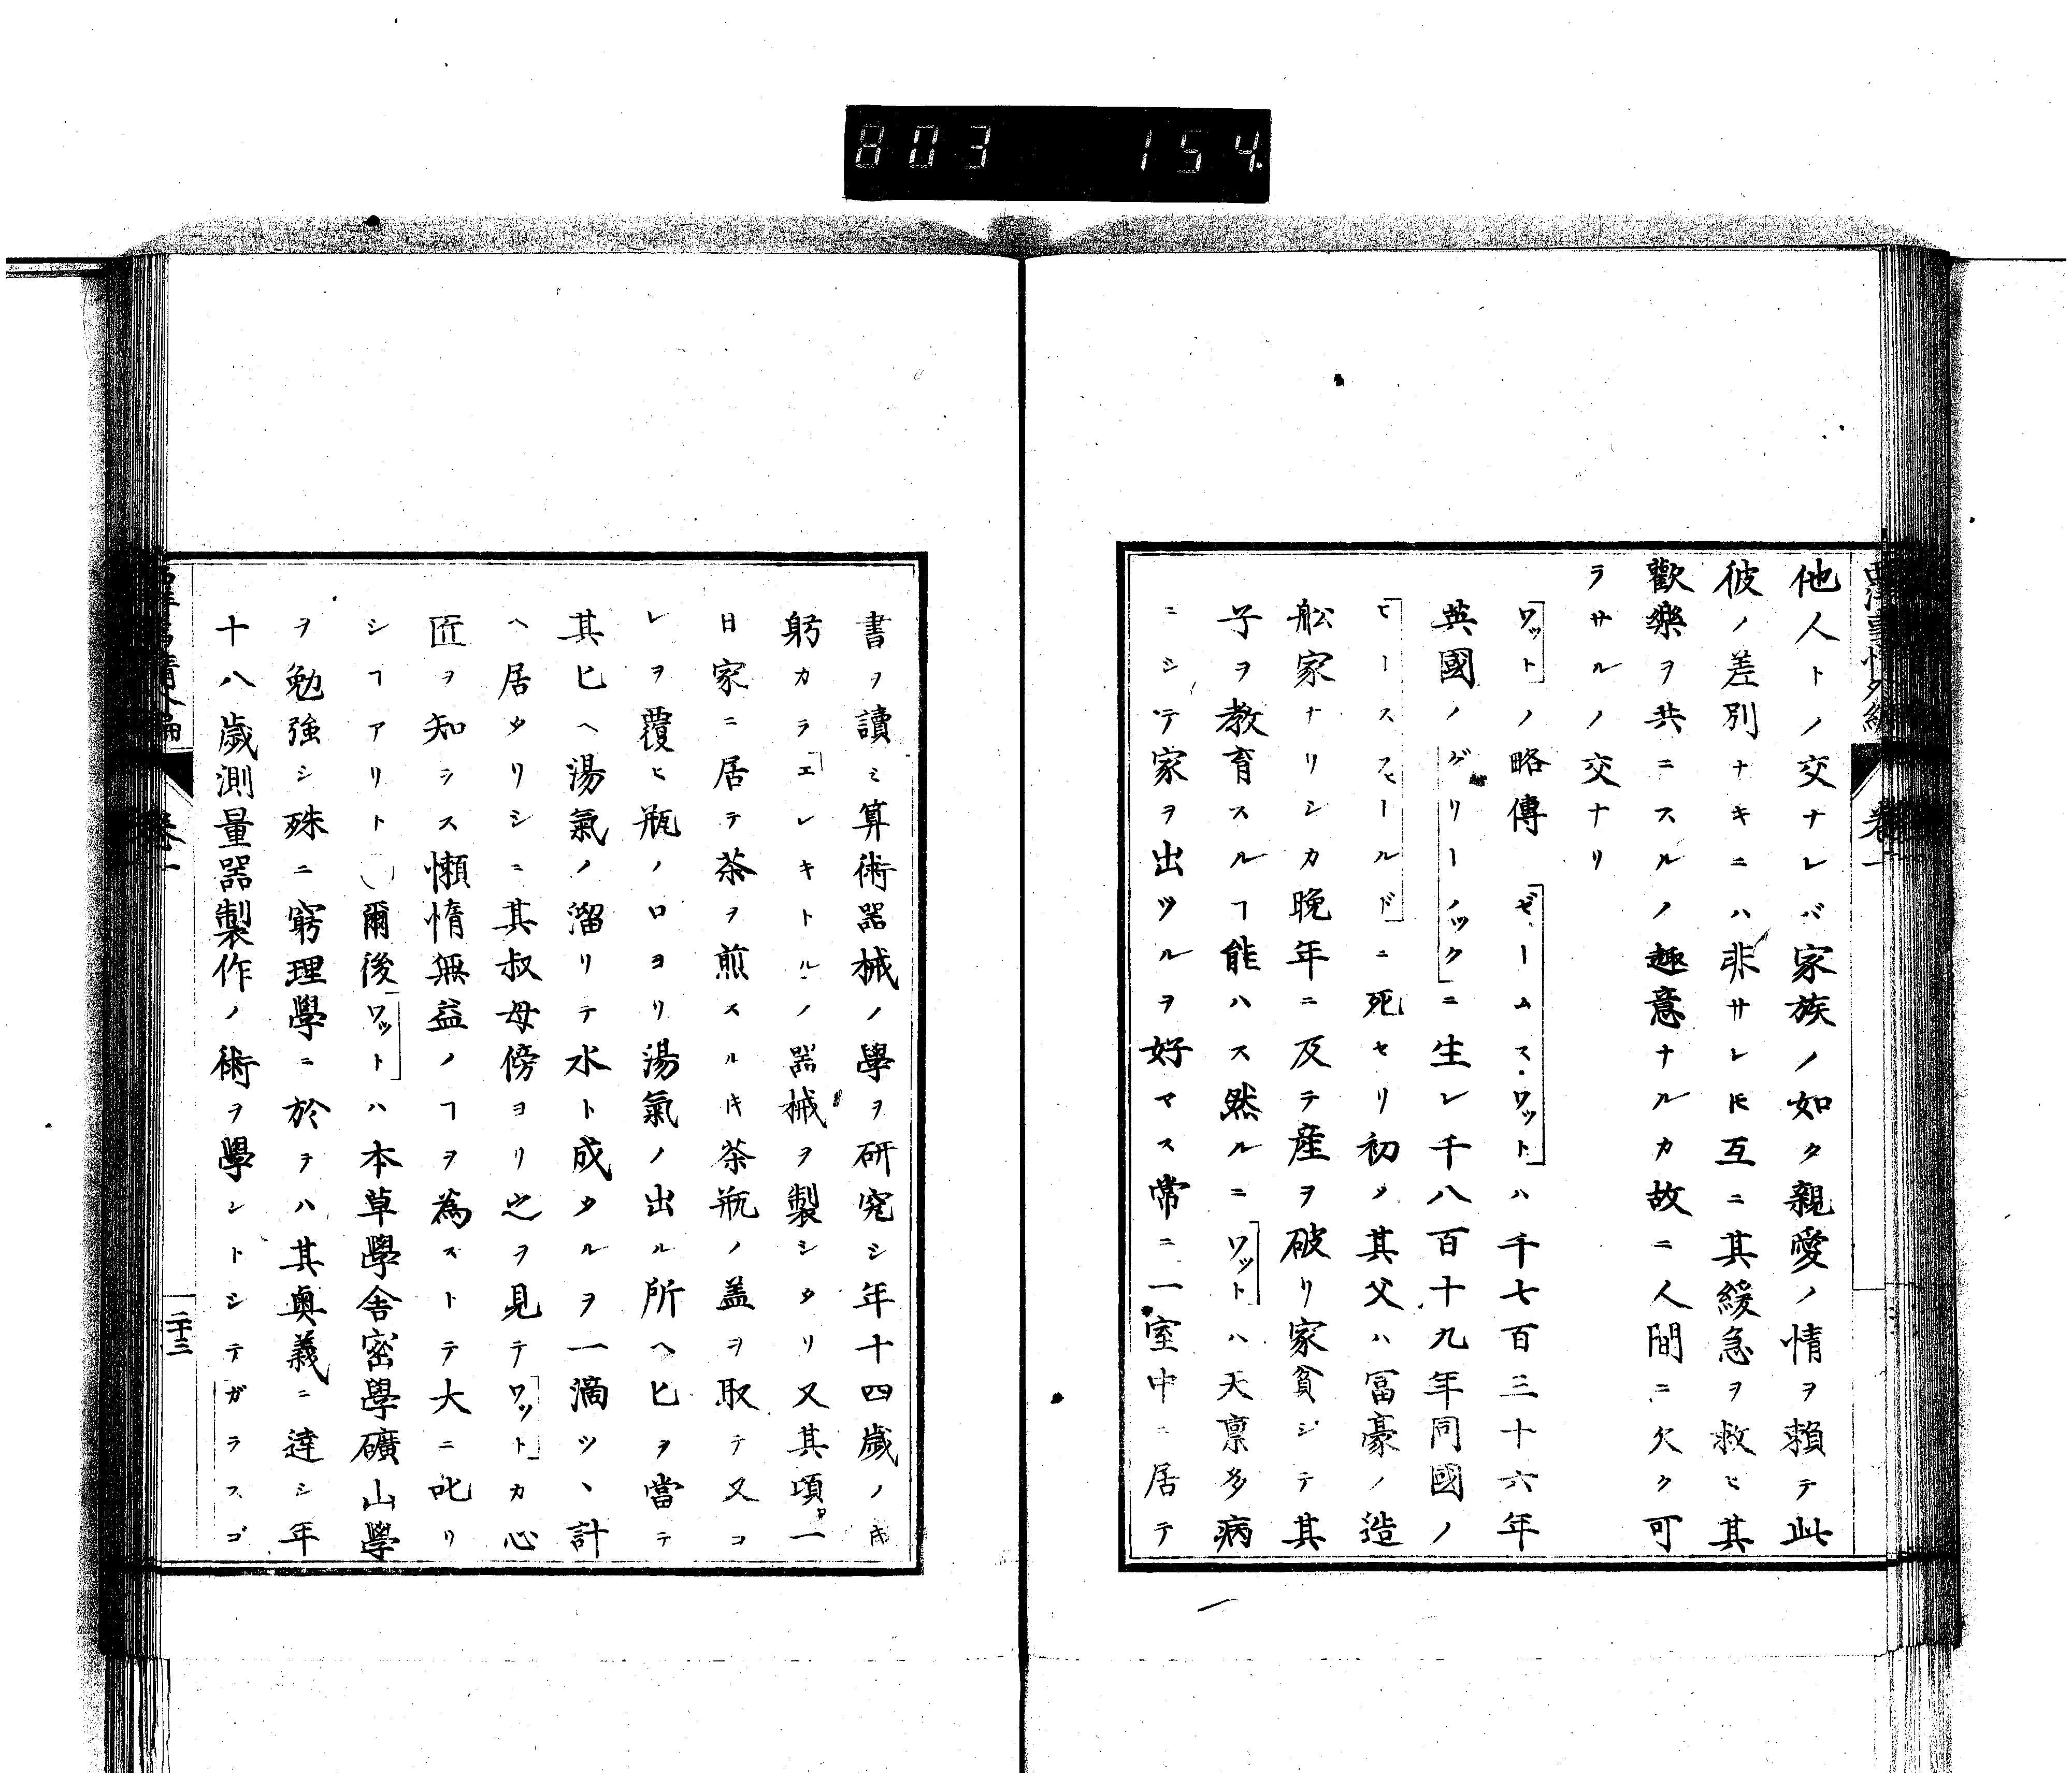 803 154
西洋事情外編 卷一
他人トノ交ナレバ家族ノ如ク親愛ノ情ヲ賴テ此
彼ノ差別ナキニハ非サレ𪜈互ニ其緩急ヲ救ヒ其
歡樂ヲ共ニスルノ趣意ナルカ故ニ人間ニ欠ク可
ラサルノ交ナリ
ワットノ略傳 ゼームス・ワットハ千七百三十六年
英國ノグリーノックニ生レ千八百十九年同國ノ
ヒースフヒールドニ死セリ初メ其父ハ冨豪ノ造
舩家ナリシカ晚年ニ及テ産ヲ破リ家貧シテ其
子ヲ教育スルヿ能ハス然ルニワットハ天禀多病
ニシテ家ヲ出ツルヲ好マス常ニ一室中ニ居テ
書ヲ讀ミ算術器械ノ學ヲ研究シ年十四歳ノ𪜈
躬カラエレキトルノ器械ヲ製シタリ又其頃一
日家ニ居テ茶ヲ煎スル𪜈茶瓶ノ盖ヲ取テ又コ
レヲ覆ヒ瓶ノ口ヨリ湯氣ノ出ル所ヘヒヲ當テ
其ヒヘ湯氣ノ溜リテ水ト成タルヲ一滴ツヽ計
ヘ居タリシニ其叔母傍ヨリ之ヲ見テワットカ心
匠ヲ知ラス懶惰無益ノヿヲ為ストテ大ニ叱リ
シヿアリト〇爾後ワットハ本草學舍密學礦山學
ヲ勉強シ殊ニ窮理學ニ於テハ其奥義ニ達シ年
十八歳測量器製作ノ術ヲ學ントシテガラスゴ
卷一
二十三